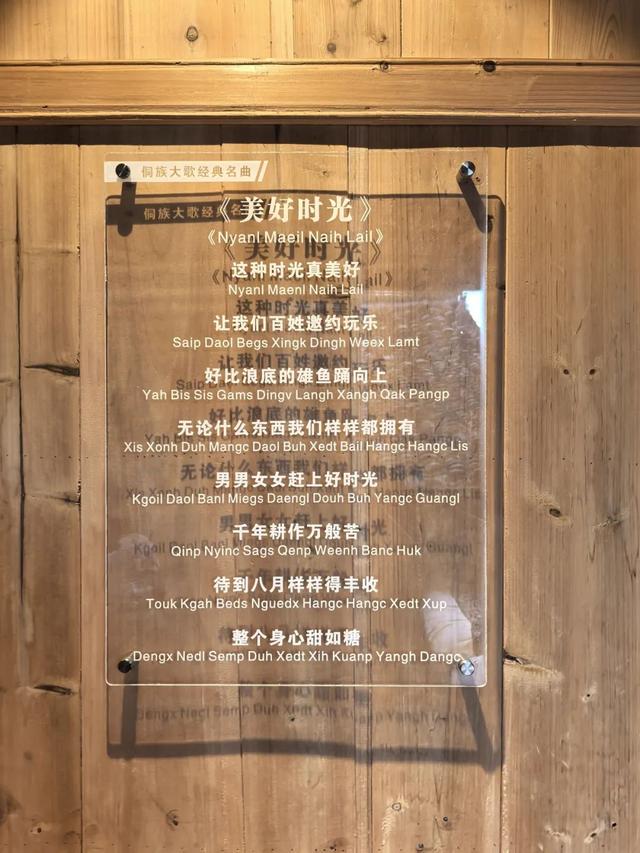 侗族大歌经典名曲
《美好时光》
《Nyanl Maeil Naih Lail》
这种时光真美好
Nyanl Maenl Naih Lail
让我们百姓邀约玩乐
Saip Daol Begs Xingk Dingh Weex Lamt
好比浪底的雄鱼踊向上
Yah Bis Sis Gams Dingv Langh Xangh Qak Pangp
无论什么东西我们样样都拥有
Xis Xonh Duh Mangc Daol Buh Xedt Bail Hangc Hangc Lis
男男女女赶上好时光
Kgoil Daol Banl Miegs Daengl Douh Buh Yangc Guangl
千年耕作万般苦
Qinp Nyinc Sags Qenp Weenh Banc Huk
待到八月样样得丰收
Touk Kgah Beds Nguedx Hangc Hangc Xedt Xup
整个身心甜如糖
Dengx Nedl Semp Duh Xedt Xih Kuanp Yangh Dangc